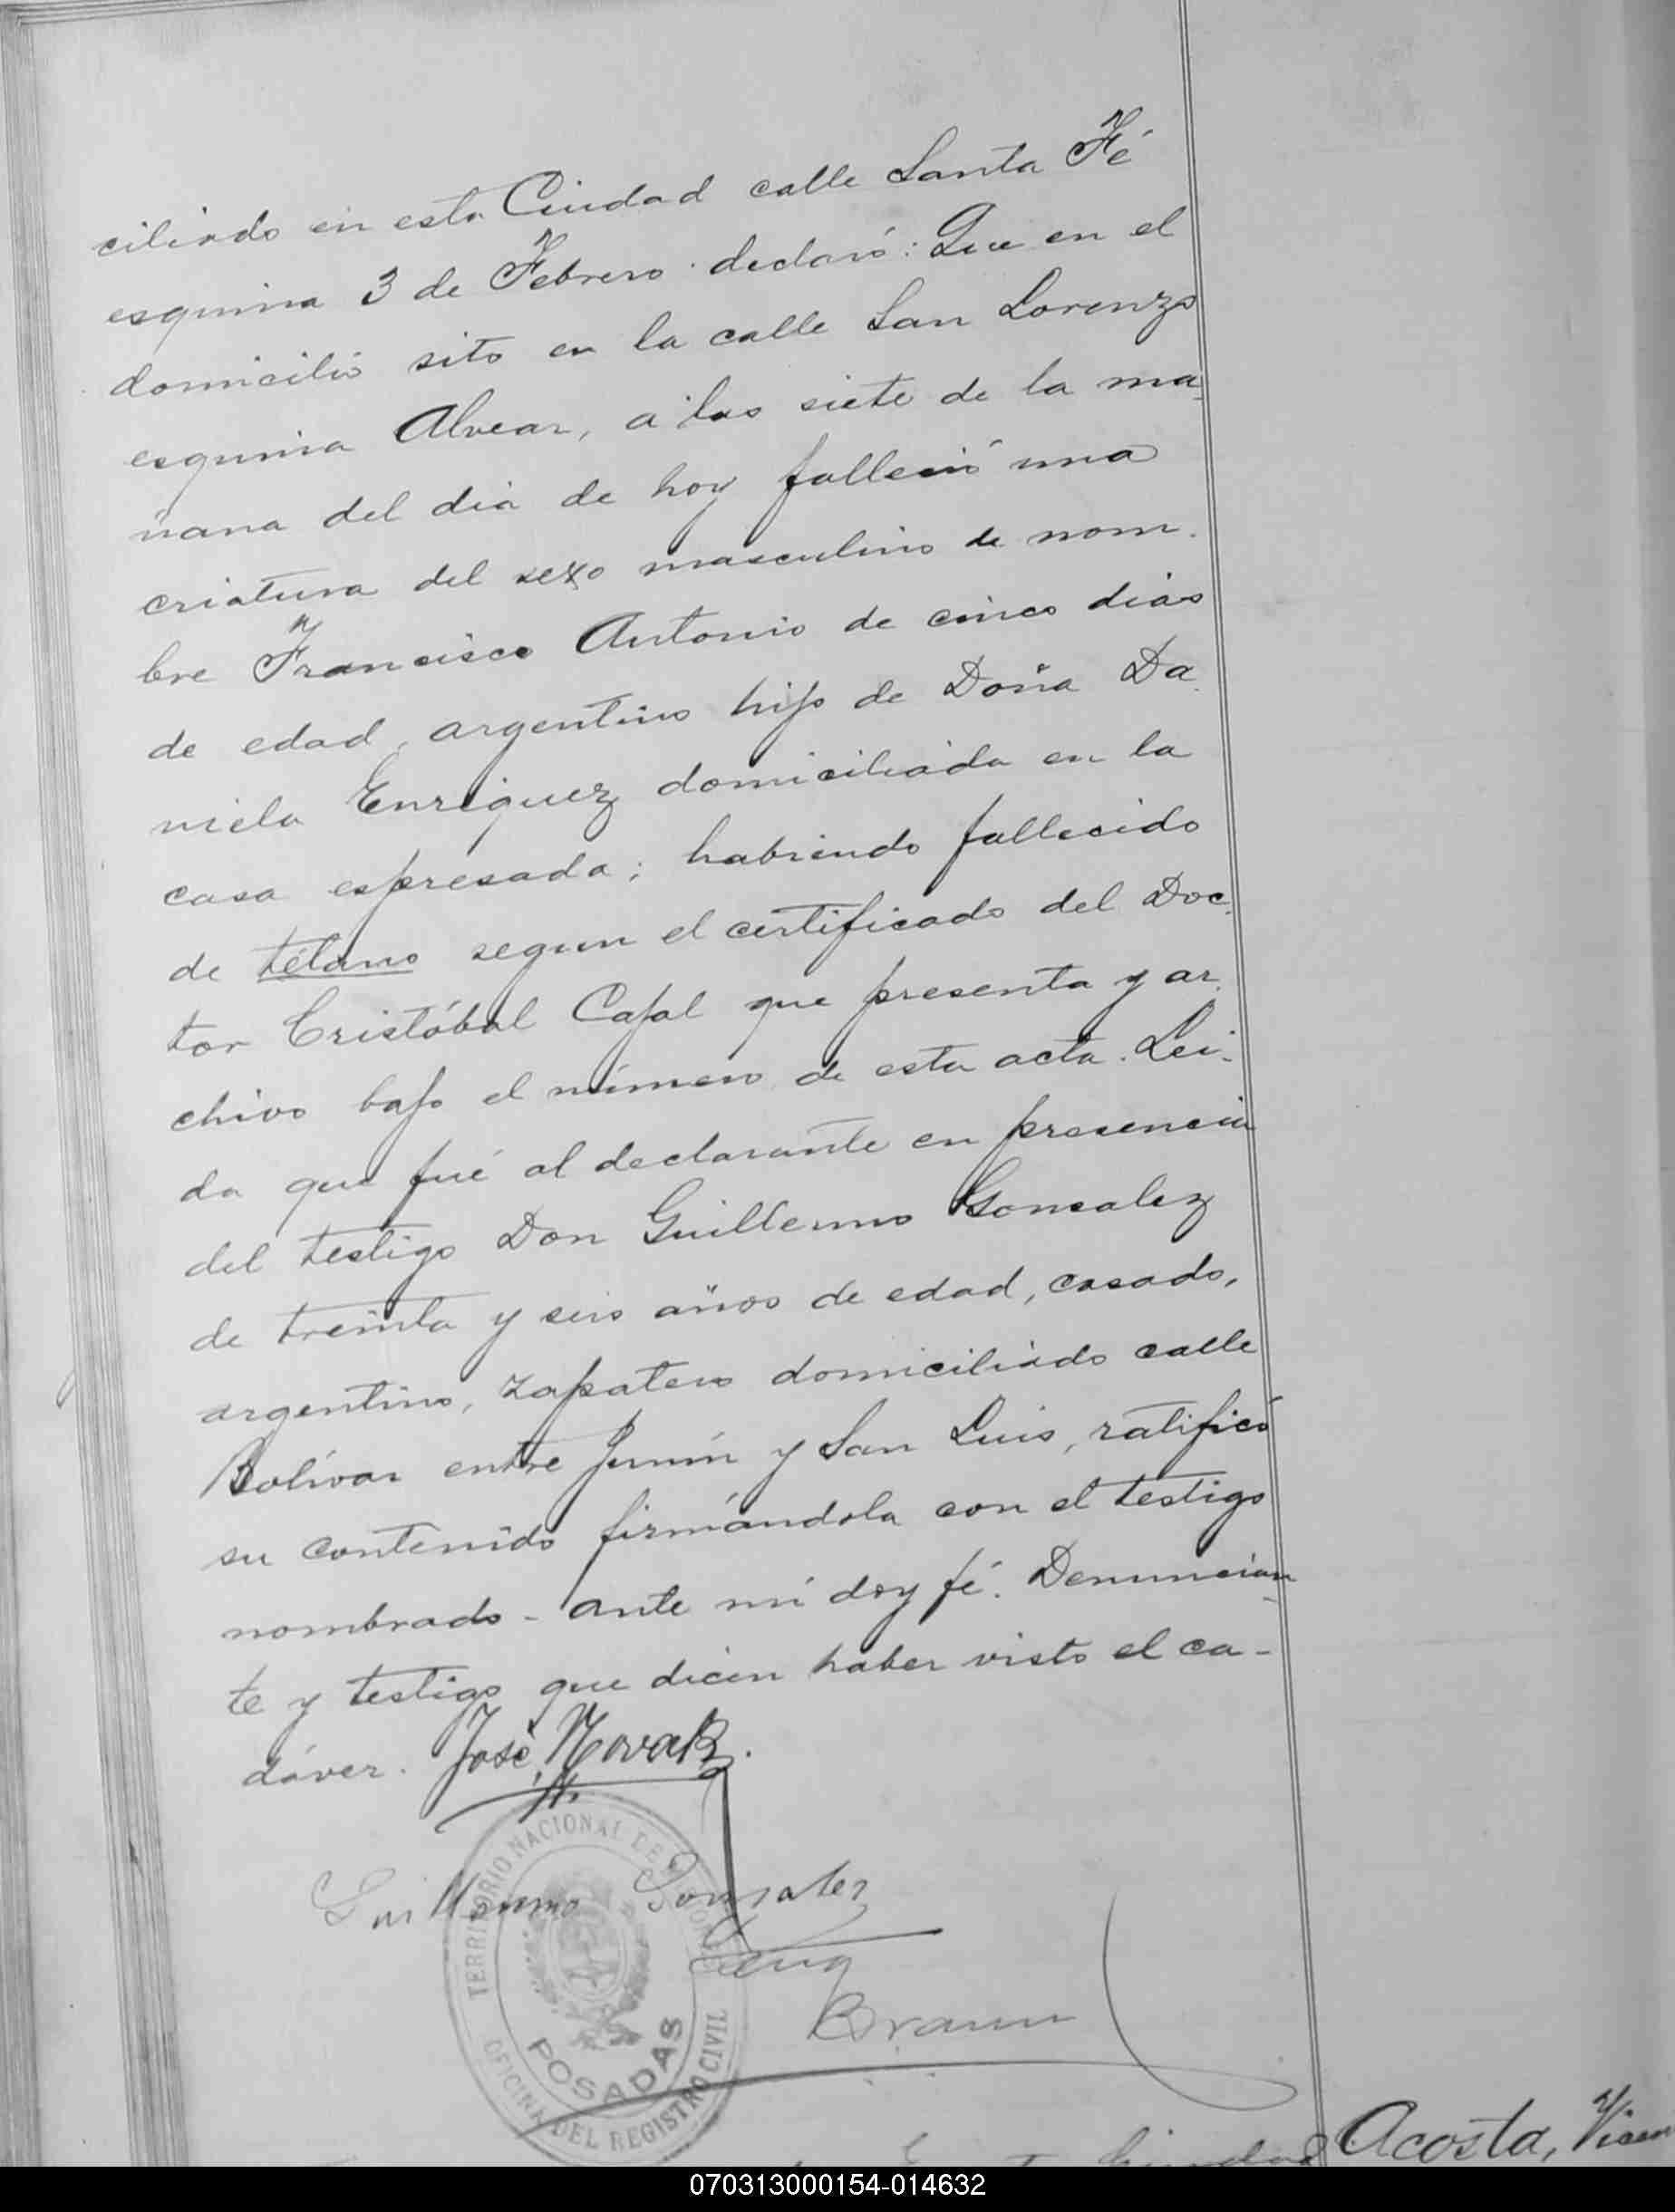 ciliado en esta Ciudad calle Santa Fé
esquina 3 de Febrero declaró: Que en el
domicilio sito en la calle San Lorenzo
esquina Alvear, a las siete de la ma-
ñana del dia de hoy falleció una
criatura del sexo masculino de nom-
bre Francisco Antonio de cinco dias
de edad, argentino hijo de Doña Da-
niela Enriquez domiciliada en la
casa espresada; habiendo fallecido
de tétano segun el certificado del Doc-
tor Cristóbal Cajal que presenta y ar-
chivo bajo el número de esta acta. Lei-
da que fué al declarante en presencia
del testigo Don Guillermo Gonzalez
de treinta y seis años de edad, casado,
argentino, zapatero domiciliado calle
Bolívar entre Junín y San Luis, ratificó
su contenido firmándola con el testigo
nombrado - ante mí doy fé. Denuncian-
te y testigo que dicen haber visto el ca-
dáver. José Novak.
Guillermo Gonzalez
Braun
TERRITORIO NACIONAL DE MISIONES
POSADAS
OFICINA DEL REGISTRO CIVIL
Acosta,
070313000154-014632